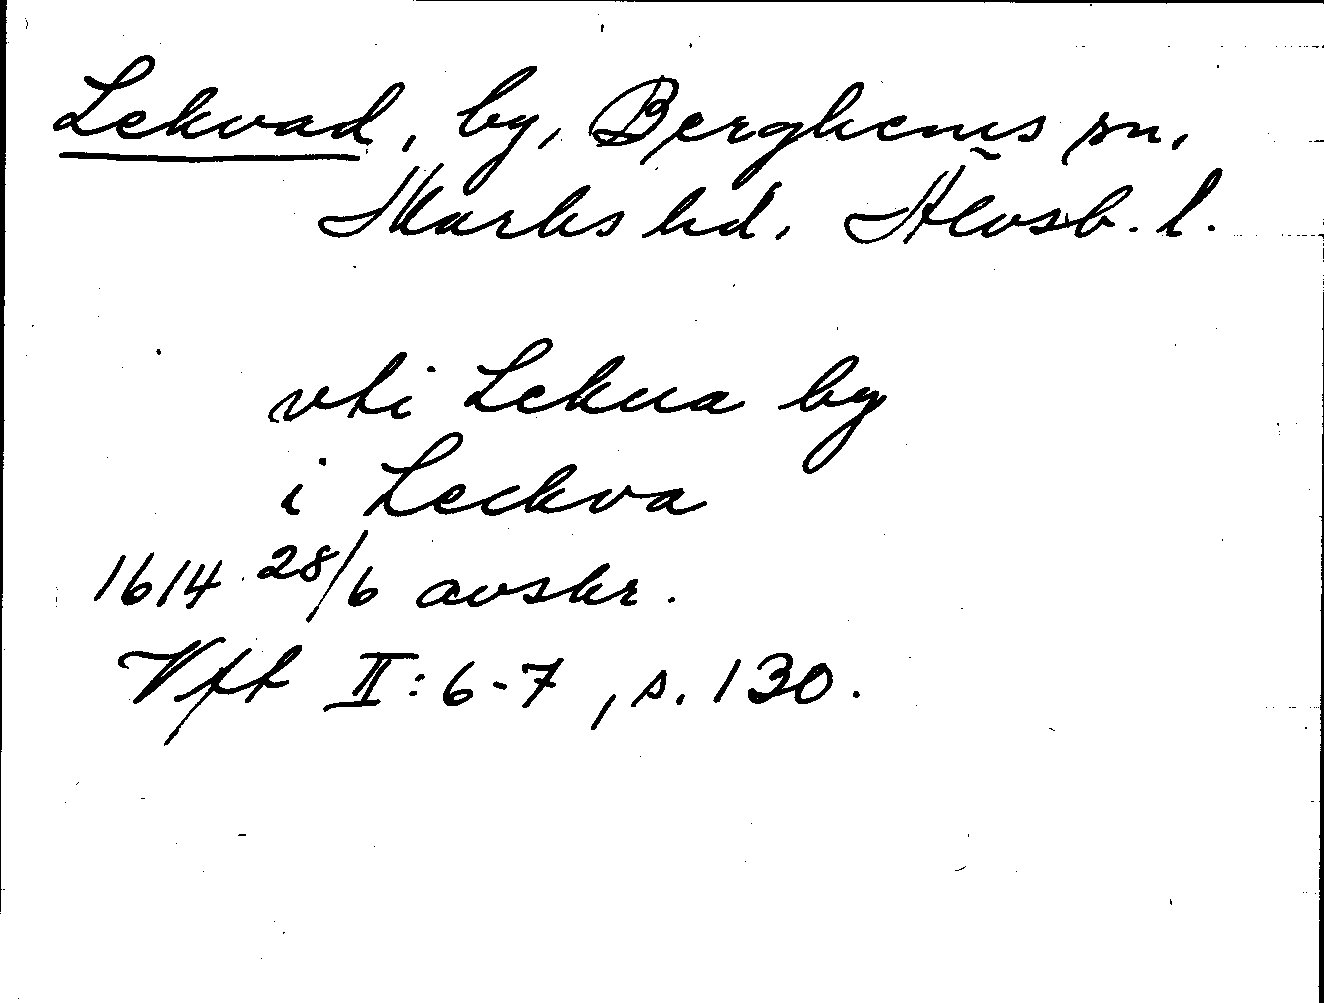 Lekvad, by, Berghems sn,
Marks hd. Älvsb. l.
vti Lekua by
i Leckva
1614 28/6 avskr.
Vft II: 6-7, s. 130.